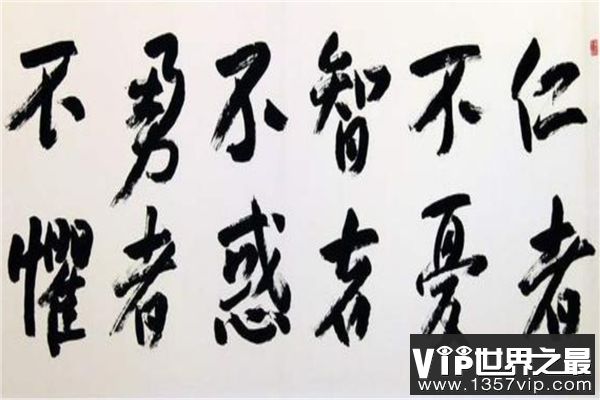 仁者
不憂
智者
不惑
勇者
不懼
VIP世界之最
www.1357vip.com